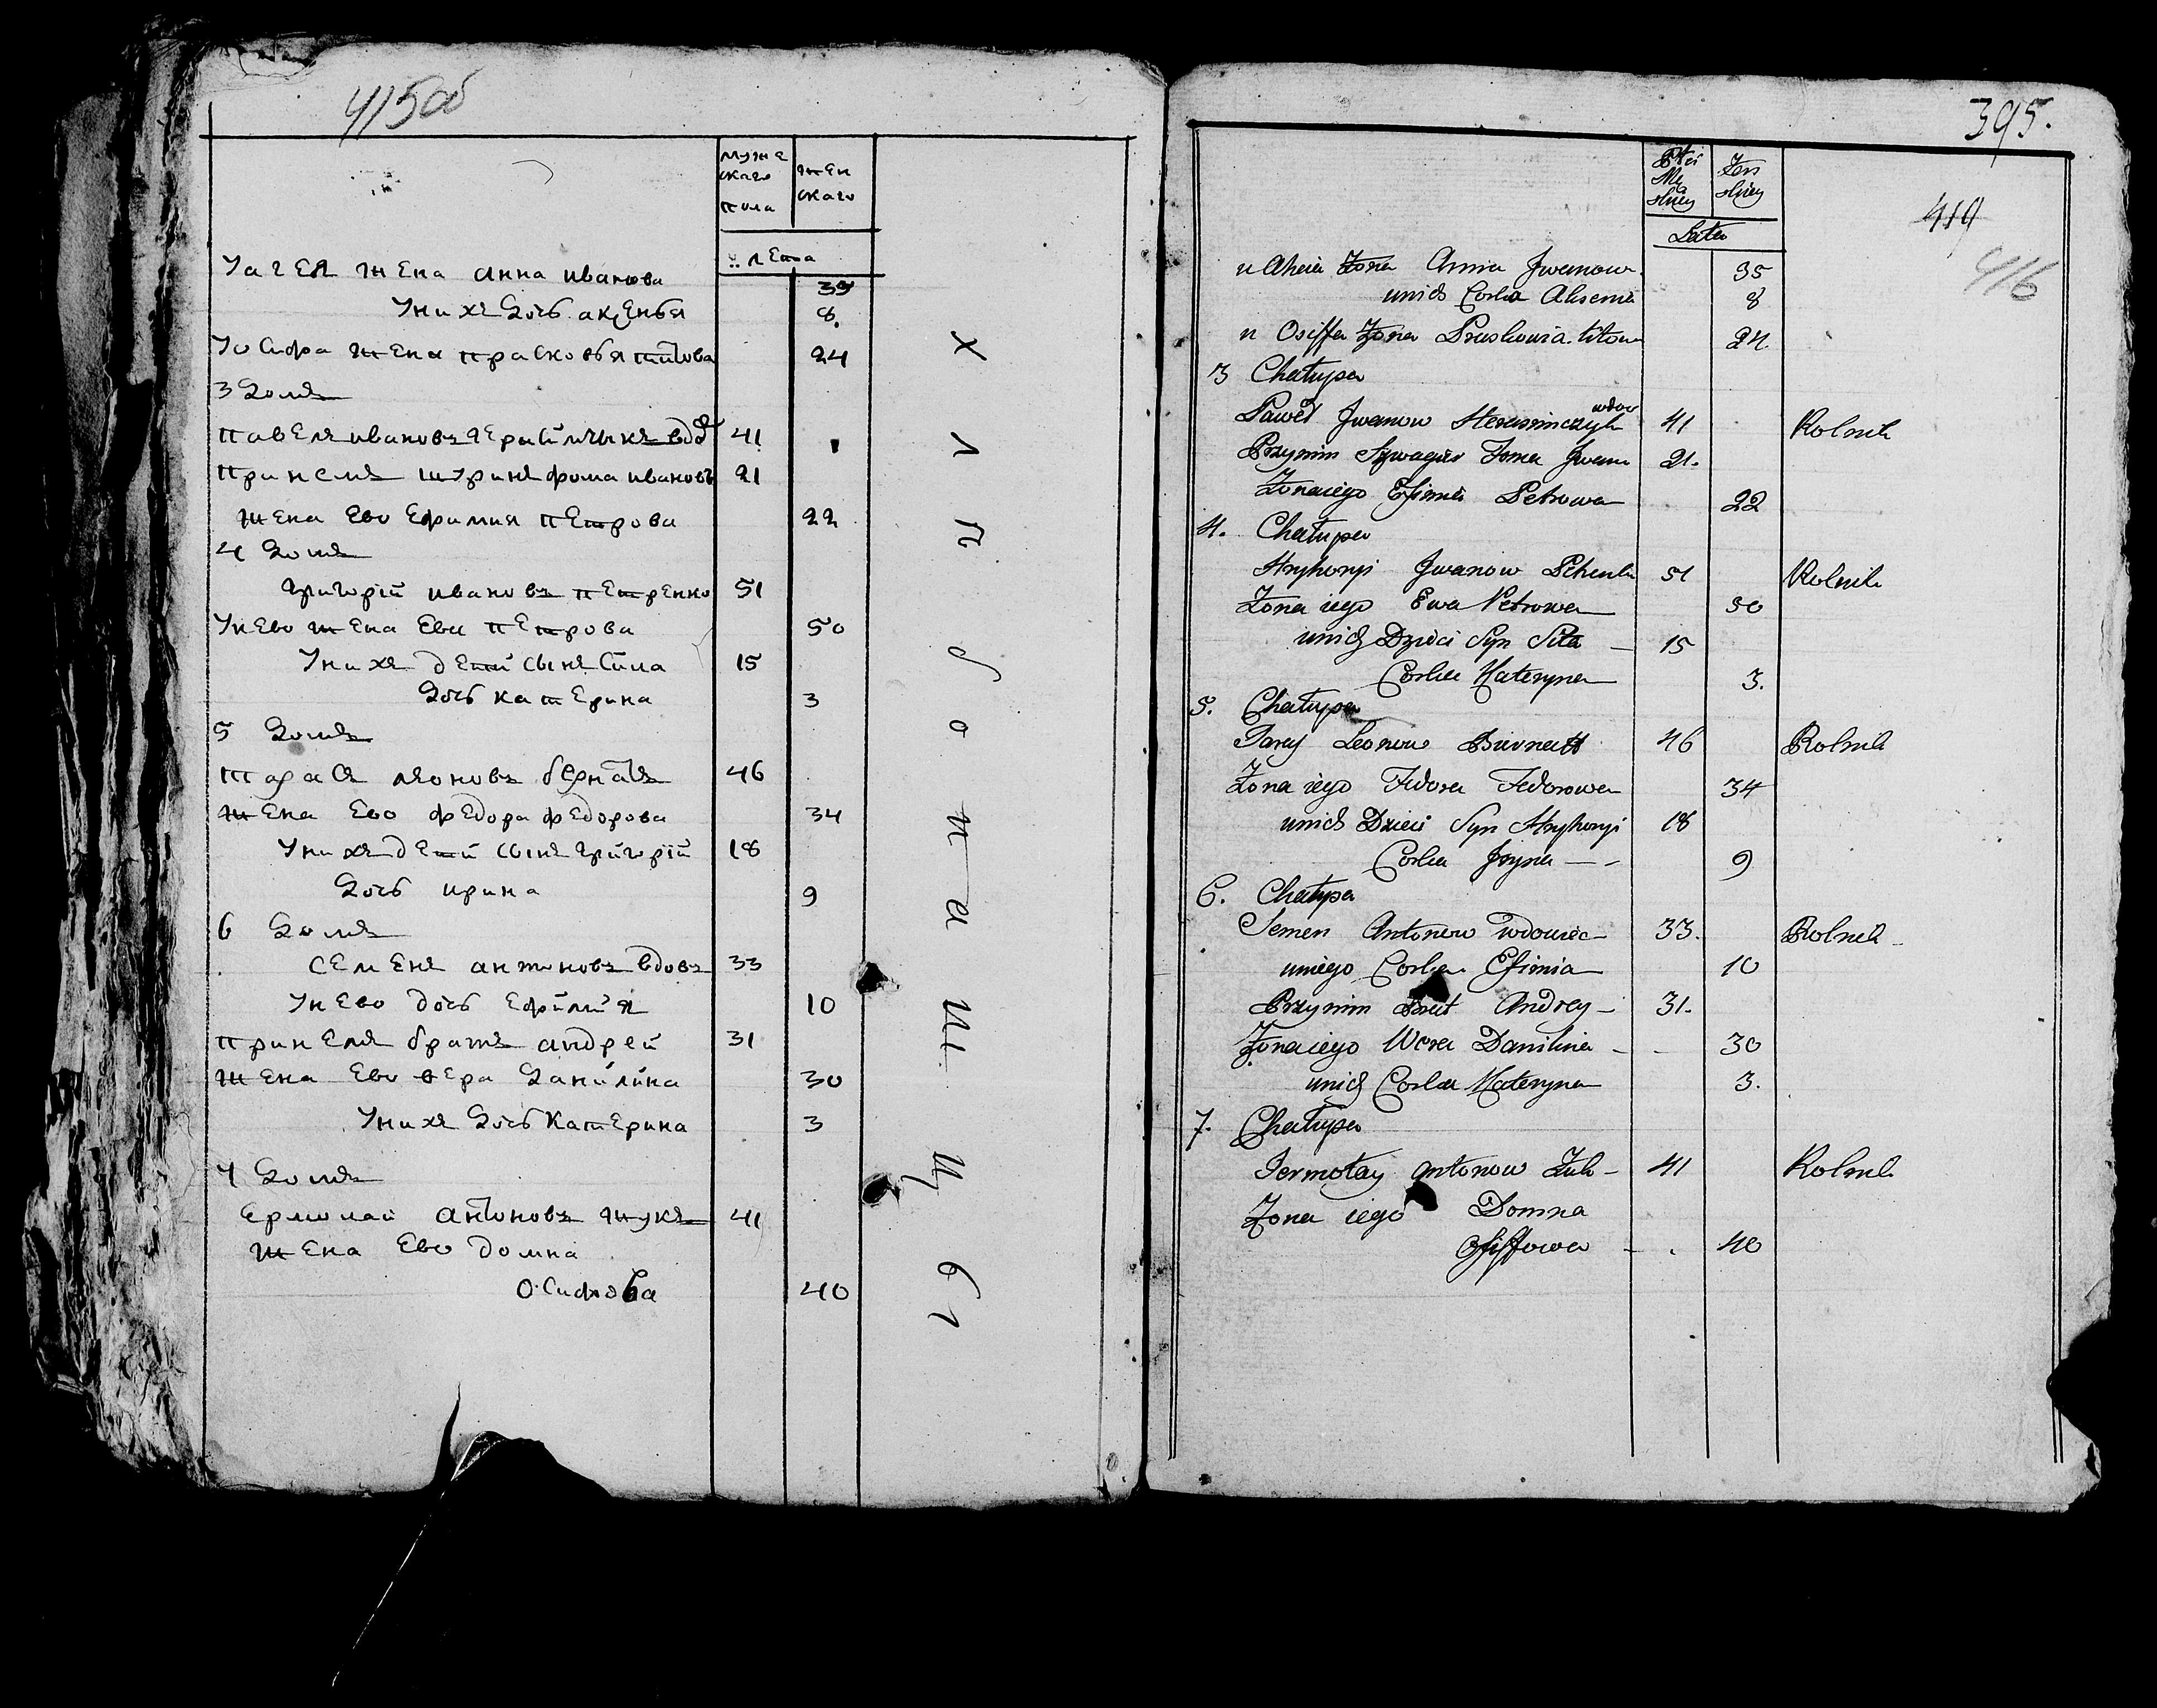 415об
мужескаго пола
женскаго
лета
У агея жена анна иванова 35
У них дочь аксенья 8.
У осифа жена прасковья титова 24
3 домъ
павелъ ивановъ герасимчыкъ вдо 41
принелъ шуринъ фома ивановъ 21
жена ево ефимия петрова 22
4 домъ
григорій ивановъ петренко 51
У нево жена ева петрова 50
У нихъ дети сынъ сила 15
дочь катерина 3
5 домъ
тарасъ леоновъ бернатъ 46
жена ево федора федорова 34
У нихъ дети сынъ григорій 18
дочь ирина 9
6 домъ
семенъ антоновъ вдовъ 33
У нево дочь ефимия 10
принелъ братъ андрей 31
жена ево вера данилина 30
У нихъ дочь катерина 3
7 домъ
ермолай антоновъ жукъ 41
жена ево домна
осифова 40
хлпбопашцы
395.
419
416
Płci Męskiey
Żenskiey
Lata
u Aheia Żona Anna Jwanow. 35
unich Corka Aksenia 8
u Osiffa Żona Praskowia titow 24
3 Chałupa
Paweł Jwanow Herasimczyk wdow 41 Rolnik
Przymin Szwagier Foma Jwano 21.
Żona iego Efimia Petrowa 22
4. Chałupa
Hryhoryi Jwanow 51 Rolnik
Żona iego Ewa Petrowa 50
unich Dzieci Syn Siła 15
Corka Kateryna 3.
5. Chałupa
Taras Leonow Biernatt 46 Rolnik
Żona iego Fedora Fedorowa 34
unich Dzieci Syn Hryhoryi 18
Corka Jryna 9
6. Chałupa
Semen Antonow wdowiec 33. Rolnik
uniego Corka Efimia 10
Przymin Brat Andrey 31.
Żona iego Wera Daniłina 30
unich Corka Kateryna 3.
7. Chałupa
Jermołay Antonow Żuk 41 Rolnik
Żona iego Domna
Osiffowa 40